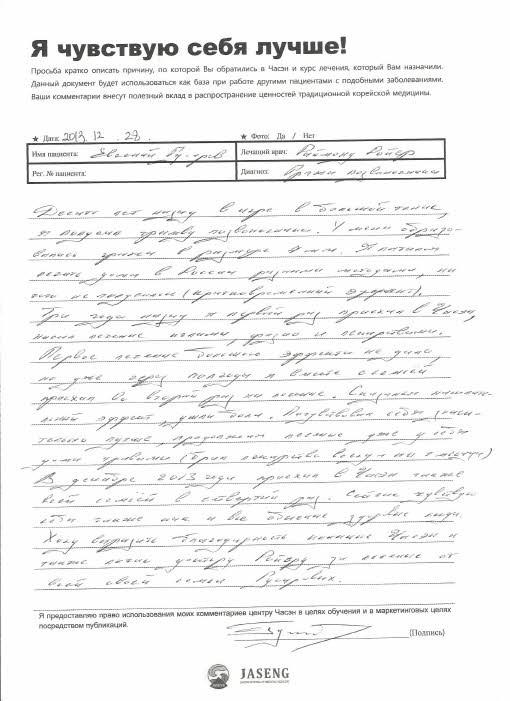 Я чувствую себя лучше!
Просьба кратко описать причину, по которой Вы обратились в Часэн и курс лечения, который Вам назначили.
Данный документ будет использоваться как база при работе другими пациентами с подобными заболеваниями.
Ваши комментарии внесут полезный вклад в распространение ценностей традиционной корейской медицины.
★ Дата: 2013. 12 . 28 .
★ Фото: Да / Нет
Имя пациента: Евгений
Лечащий врач: Раймонд Ройер
Рег. № пациента:
Диагноз: позвоночника
Десять лет назад в игре в большой теннис,
я получил травму позвоночника. У меня образо-
валась грыжа в размере мм. Я начинал
лечить дома в России разными методами, ни
чего не получалось (кратковременный эффект).
Три года назад я первый раз приехал в Часэн,
начал лечение иглами, физио и лекарствами.
Первое лечение большого эффекта не дало,
но уже через полгода я вместе с семьей
приехал во второй раз на лечение.
эффект, ушли боли. Почувствовал себя значи-
тельно лучше, продолжали лечение уже у себя
дома травами (брал лекарство с собой на месяц)
В декабре 2013 года приехал в Часэн также
всей семьёй в четвертый раз. Сейчас чувствую
себя также как и все обычные здоровые люди.
Хочу выразить благодарность клинике Часэн и
также лично доктору Ройеру за лечение от
всей своей семьи
Я предоставляю право использования моих комментариев центру Часэн в целях обучения и в маркетинговых целях
посредством публикаций.
(Подпись)
JASENG